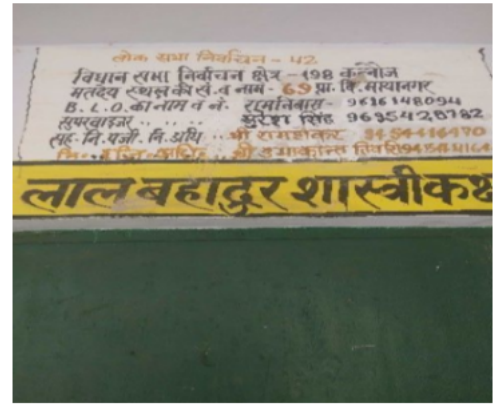 लोक सभा निर्वाचन - 42
विधान सभा निर्वाचन क्षेत्र - 198 कन्नौज
मतदेय स्थल की सं. व नाम - 69 प्रा. वि. मायानगर
B.L.O. का नाम व नं. रामनिवास - 9616148094
सुपरवाइजर .. .. .. सुरेश सिंह 9695428782
सह. नि. पंजी. नि. अधि .. श्री रामशंकर 9454416470
श्री उमाकान्त
लाल बहादुर शास्त्री कक्ष